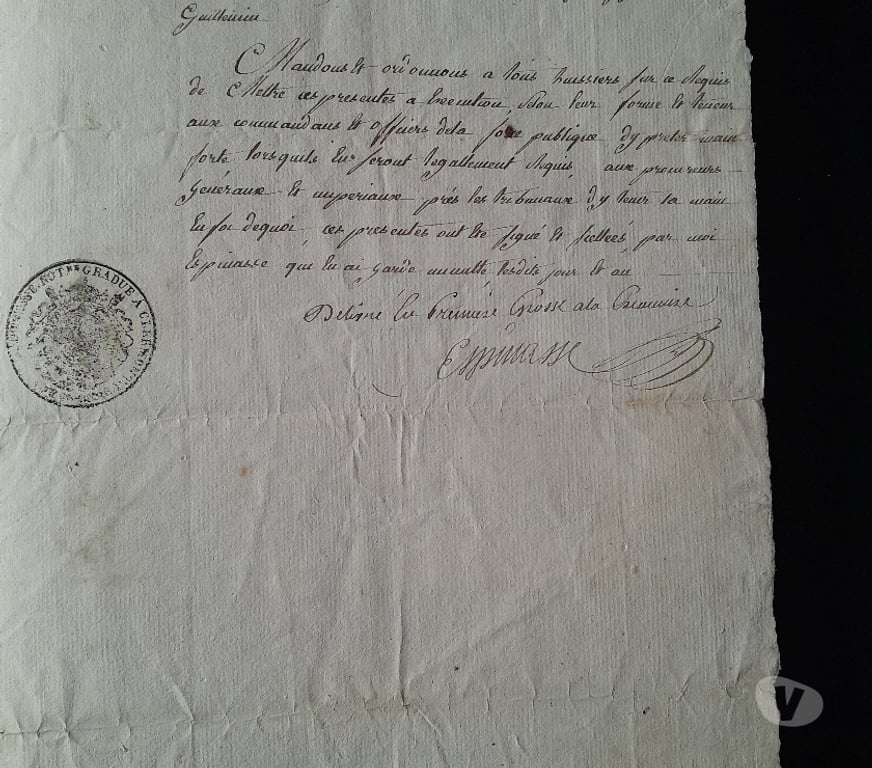 Guillemin
Mandons et ordonnons a tous huissiers sur ce Requis
de Mettre ces presentes a Execution, selon leur forme et teneur
aux commandans et officiers dela force publique dy preter main
forte lorsquils En seront legallement Requis, aux procureurs
Generaux et imperiaux près les tribunaux dy tenir la main
En foi dequoi ces presentes ont Eté signé et scellées, par moi
Espinasse qui En ai gardé minutte, lesdits jour et an
Delivré En premiere Grosse ala
Espinasse
NOT.RE GRADUE A CLERMONT
V